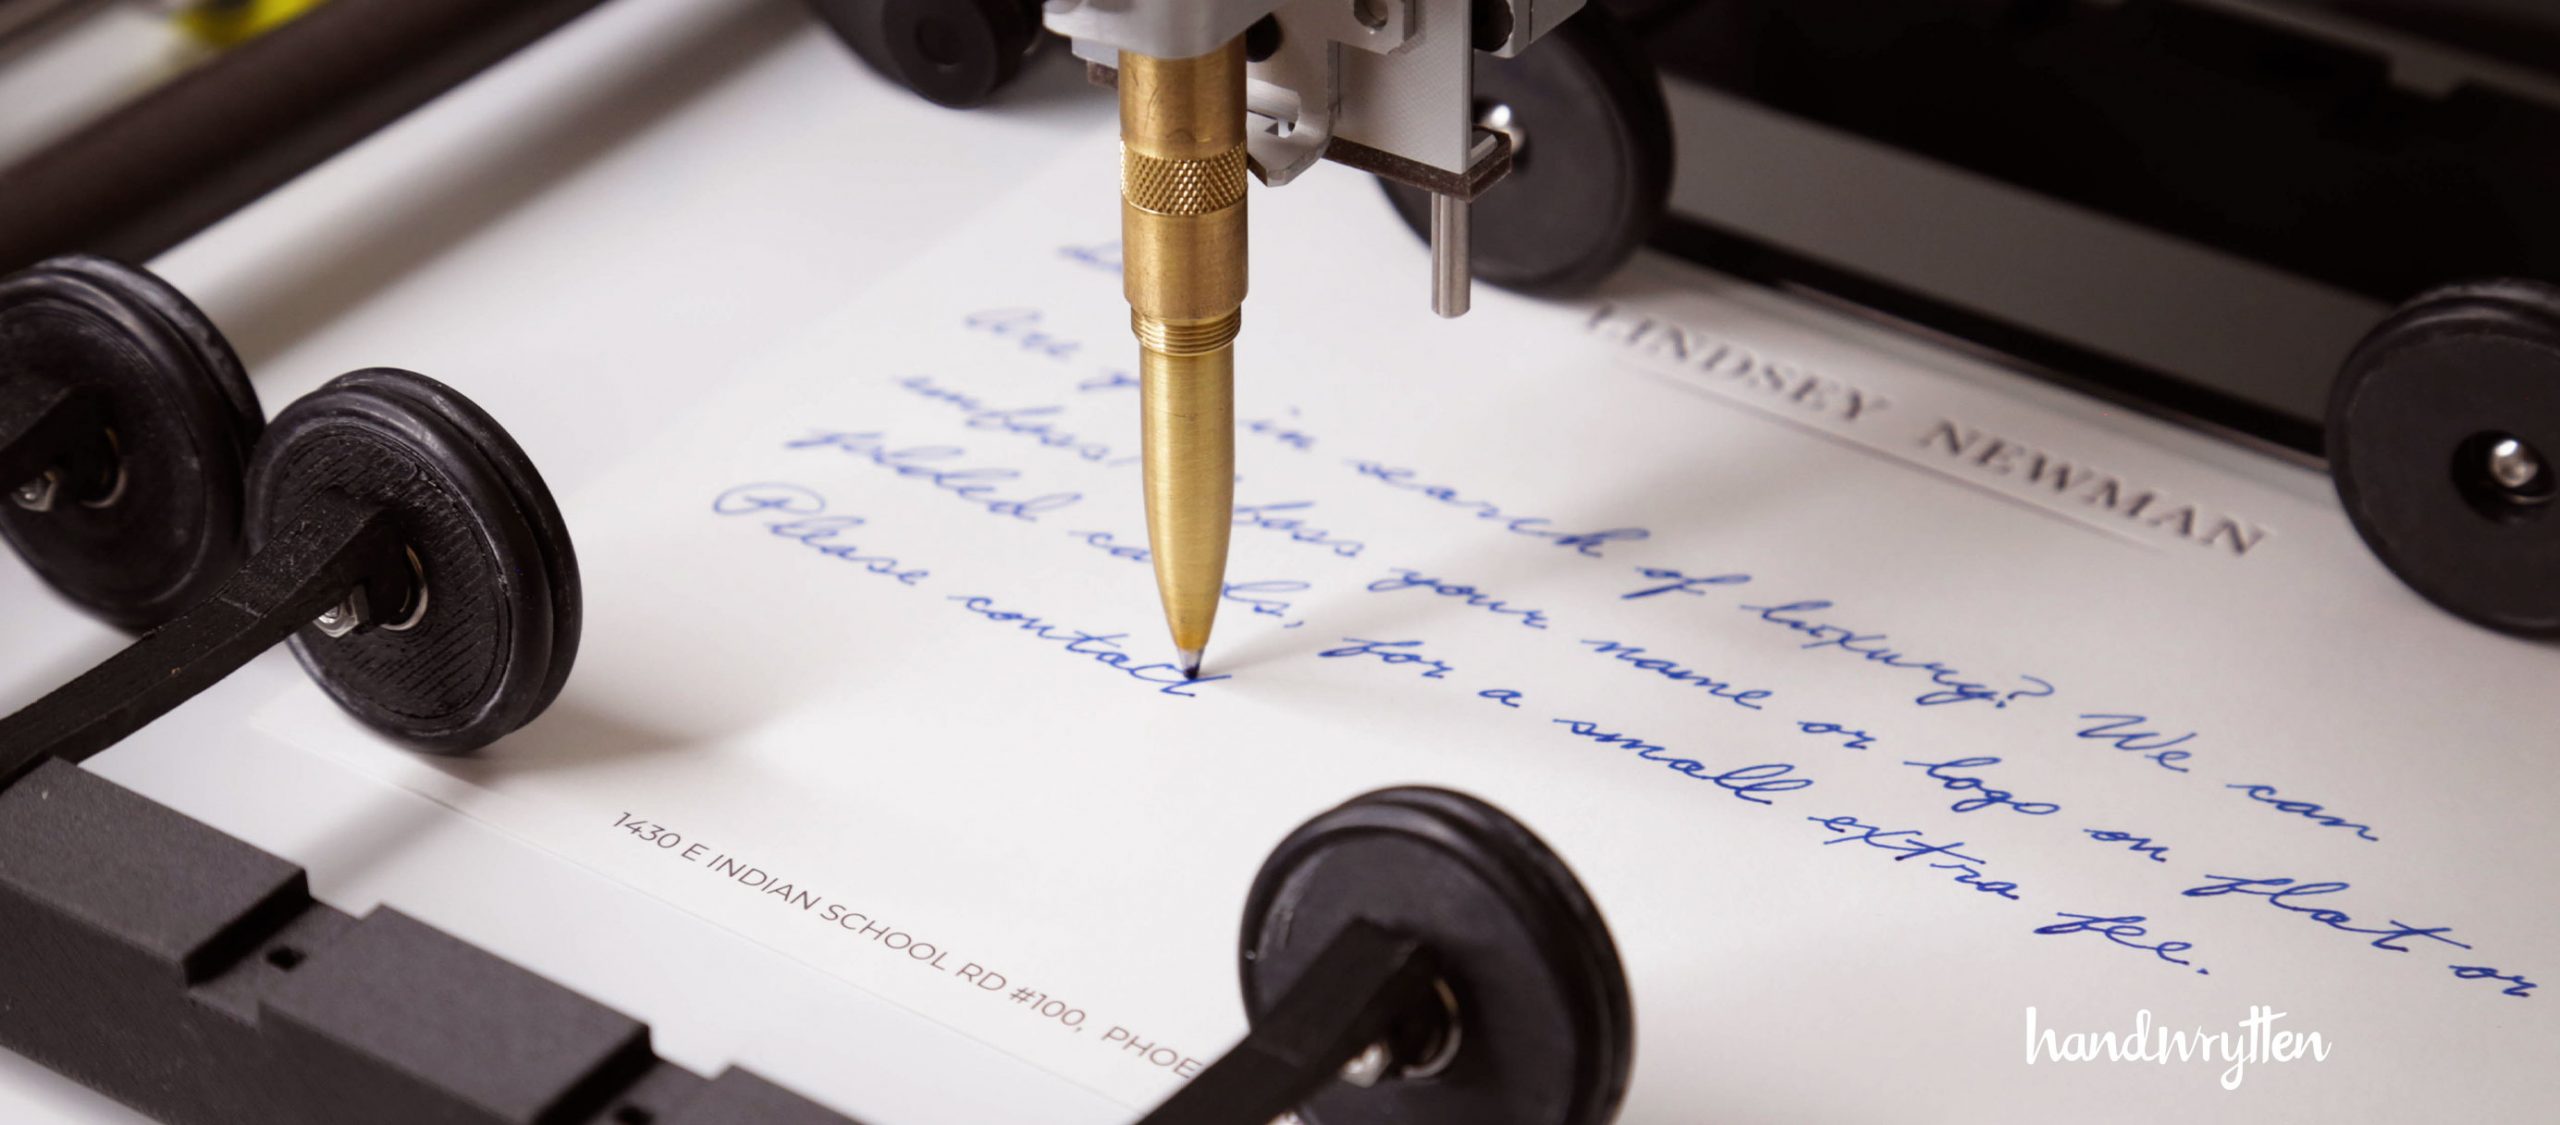 LINDSEY NEWMAN
in search of luxury? We can
your name or logo on flat or
folded cards, for a small extra fee.
Please contact
1430 E INDIAN SCHOOL RD #100, PHOE
handwrytten